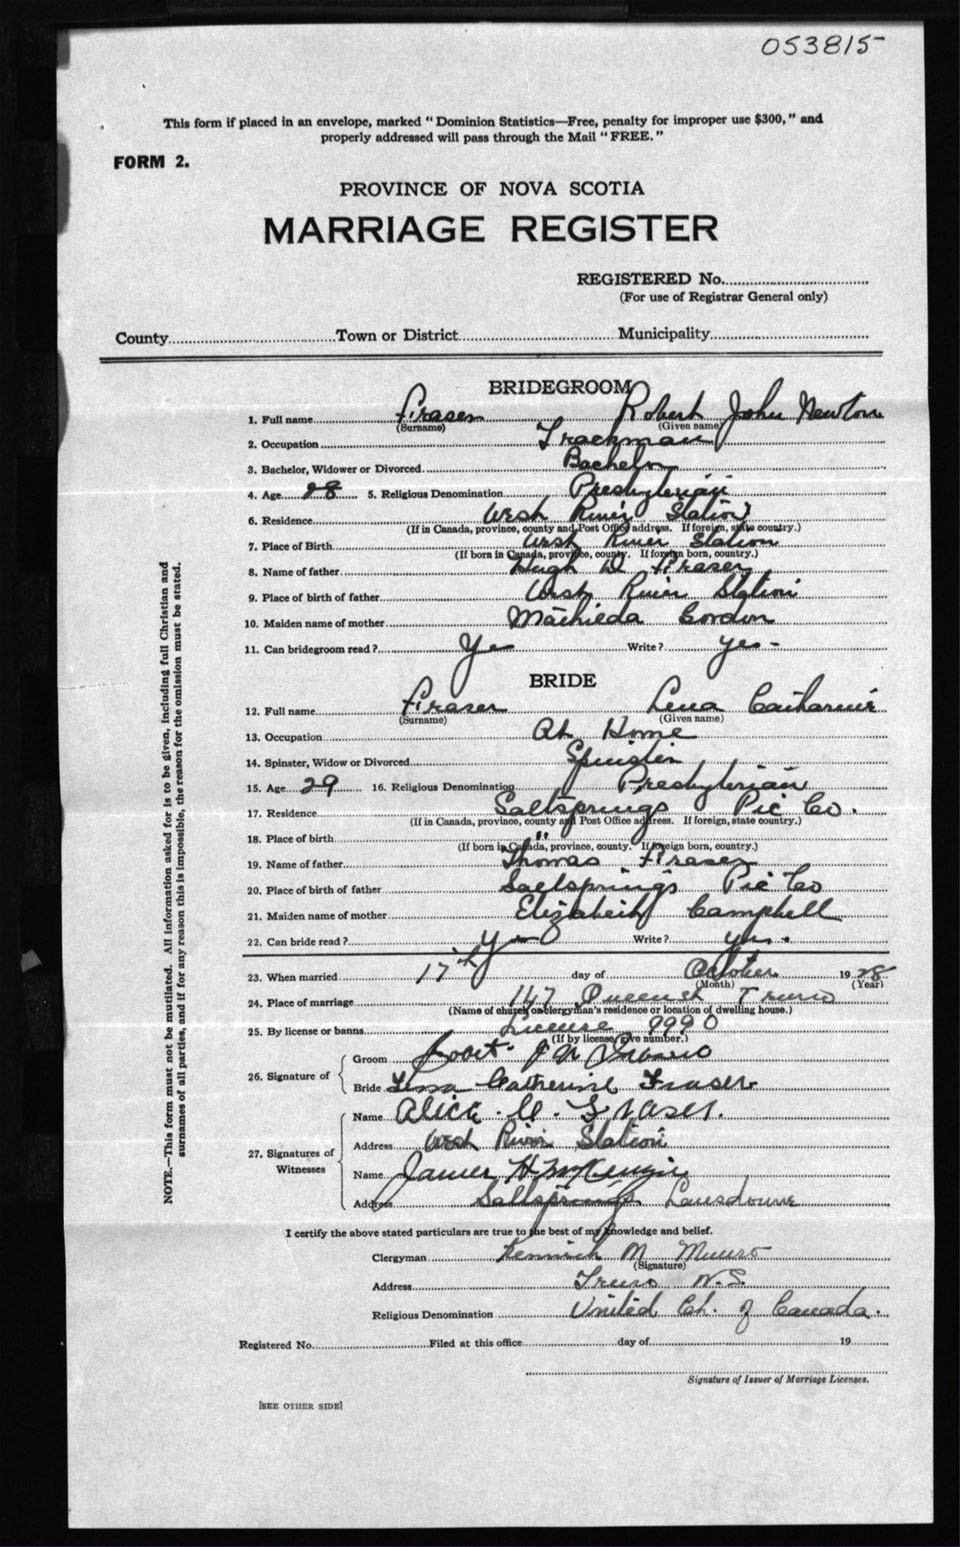 053815
This form if placed in an envelope, marked "Dominion Statistics—Free, penalty for improper use $300," and
properly addressed will pass through the Mail "FREE."
FORM 2.
PROVINCE OF NOVA SCOTIA
MARRIAGE REGISTER
REGISTERED No.
(For use of Registrar General only)
County Town or District Municipality
BRIDEGROOM
1. Full name Fraser Robert John Newton
(Surname) (Given name)
2. Occupation Trackman
3. Bachelor, Widower or Divorced Bachelor
4. Age 28 5. Religious Denomination Presbyterian
6. Residence West River Station
(If in Canada, province, county and Post Office address. If foreign, state country.)
7. Place of Birth West River Station
(If born in Canada, province, county. If foreign born, country.)
8. Name of father Hugh D Fraser
9. Place of birth of father West River Station
10. Maiden name of mother Mathilda Gordon
11. Can bridegroom read? Yes Write? Yes-
BRIDE
12. Full name Fraser Lena Catharine
(Surname) (Given name)
13. Occupation At Home
14. Spinster, Widow or Divorced Spinster
15. Age 29 16. Religious Denomination Presbyterian
17. Residence Saltsprings Pic Co.
(If in Canada, province, county and Post Office address. If foreign, state country.)
18. Place of birth "
(If born in Canada, province, county. If foreign born, country.)
19. Name of father Thomas Fraser
20. Place of birth of father Saltsprings Pic Co
21. Maiden name of mother Elizabeth Campbell
22. Can bride read? Yes Write? yes.
23. When married 17th day of October 1928
(Month) (Year)
24. Place of marriage 147 Queen St Truro
(Name of church or clergyman's residence or location of dwelling house.)
25. By license or banns License 9990
(If by license, give number.)
26. Signature of Groom Robert J N Fraser
Bride Lena Catherine Fraser
27. Signatures of Witnesses Name Alice. U. Fraser.
Address West River Station
Name James H McKenzie
Address Saltsprings Lansdowne
I certify the above stated particulars are true to the best of my knowledge and belief.
Clergyman Kennieth M Munro
(Signature)
Address Truro N.S.
Religious Denomination United Ch. of Canada.
Registered No. Filed at this office day of 19
Signature of Issuer of Marriage Licenses.
[SEE OTHER SIDE]
NOTE.—This form must not be mutilated. All information asked for is to be given, including full Christian and
surnames of all parties, and if for any reason this is impossible, the reason for the omission must be stated.